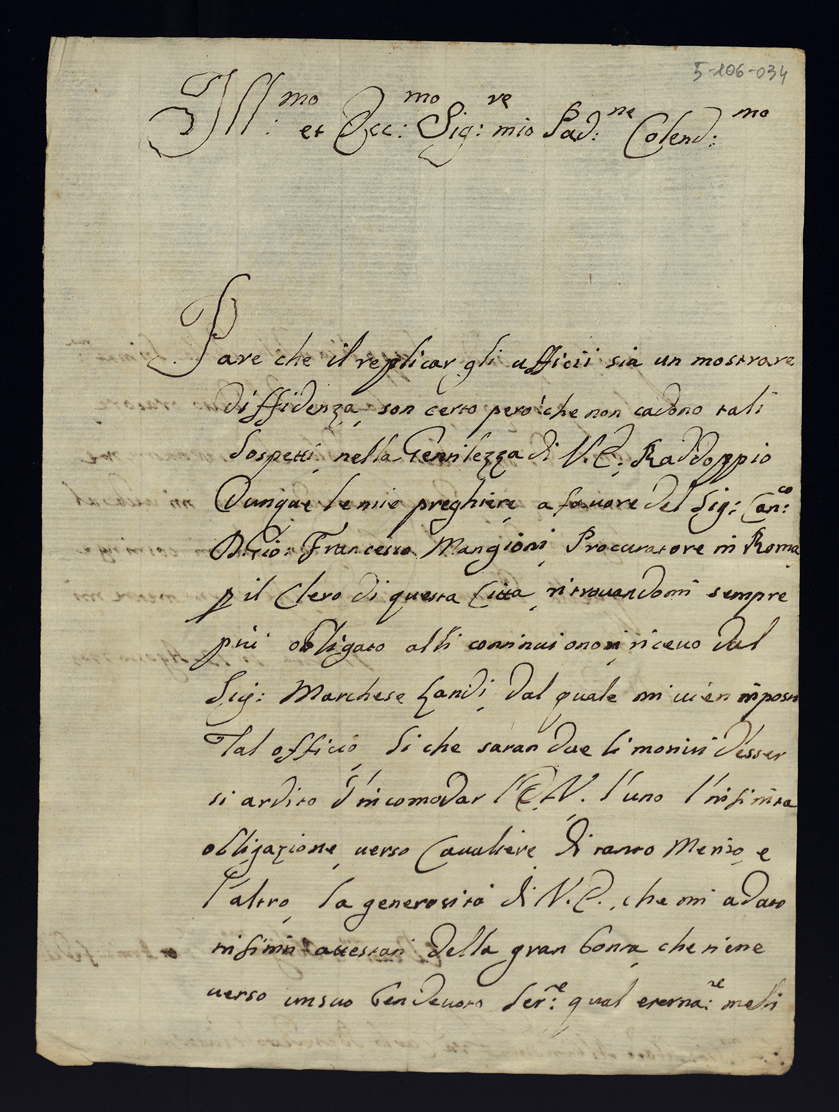 5-106-034
Ill:mo et Ecc:mo Sig:re mio Pad:ne Colend:mo
Pare che il replicar gli ufficii sia un mostrare
diffidenza, son certo però che non cadono tali
sospetti nella Gentilezza di V.E. Raddoppio
dunque le mie preghiere a favore del Sig: Can:co
Francesco Mangioni Procuratore in Roma
p il Clero di questa Citta, ritrovandomi sempre
più obligato alli continui onori ricevo dal
Sig: Marchese Landi, dal quale mi vien imposto
tal officio, si che saran due li motivi d'esser
si ardito d'incomodar l'E.V. l'uno l'infinita
obligazione verso Cavaliere di tanto Merito, e
l'altro la generosità di V.E., che mi a dato
infiniti attestati della gran bontà che tiene
verso un suo ben devoto Ser:re qual eterna:te meli